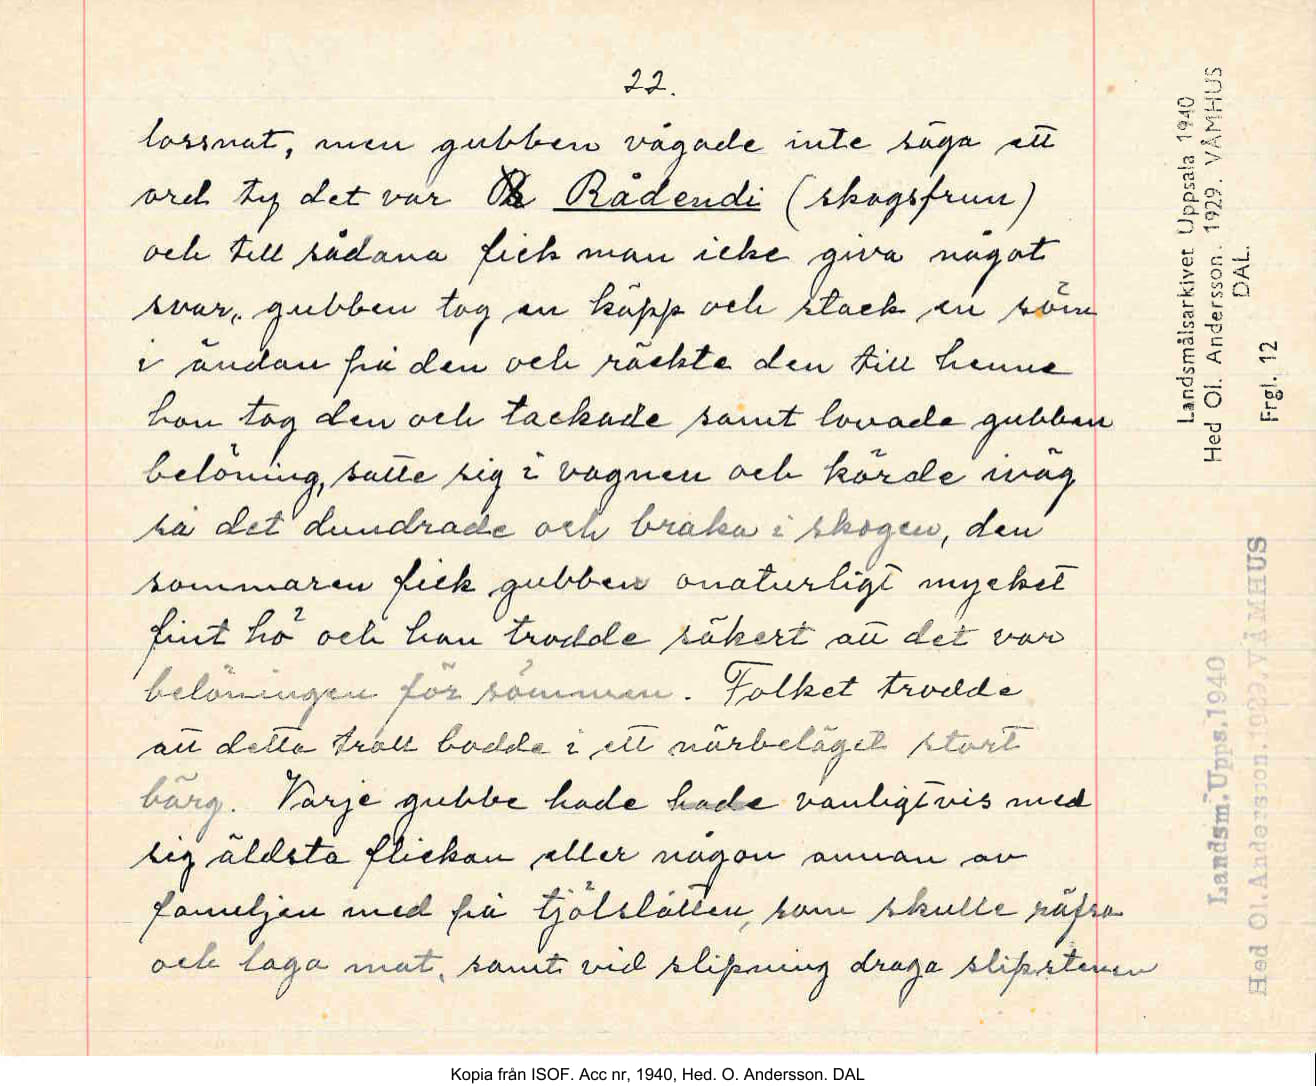 22.
lossnat, men gubben vågade inte säga ett
ord ty det var Rådendi (skogsfrun)
och till sådana fick man icke giva något
svar, gubben tog en käpp och stack en söm
i ändan på den och räckte den till henne
hon tog den och tackade samt lovade gubben
belöning, satte sig i vagnen och körde iväg
så det dundrade och braka i skogen, den
sommaren fick gubben onaturligt mycket
fint hö och han trodde säkert att det var
belöningen för sömmen. Folket trodde
att detta troll bodde i ett närbeläget stort
bärg. Varje gubbe hade hade vanligtvis med
sig äldsta flickan eller någon annan av
fameljen med på tjölslåtten, som skulle räfsa
och laga mat, samt vid slipning draga slipstenen
Landsmålsarkivet Uppsala 1940
Hed Ol. Andersson. 1929. VÅMHUS
DAL.
Frgl. 12
Landsm. Upps. 1940
Hed Ol. Andersson. 1929. VÅMHUS
Kopia från ISOF. Acc nr, 1940, Hed. O. Andersson. DAL